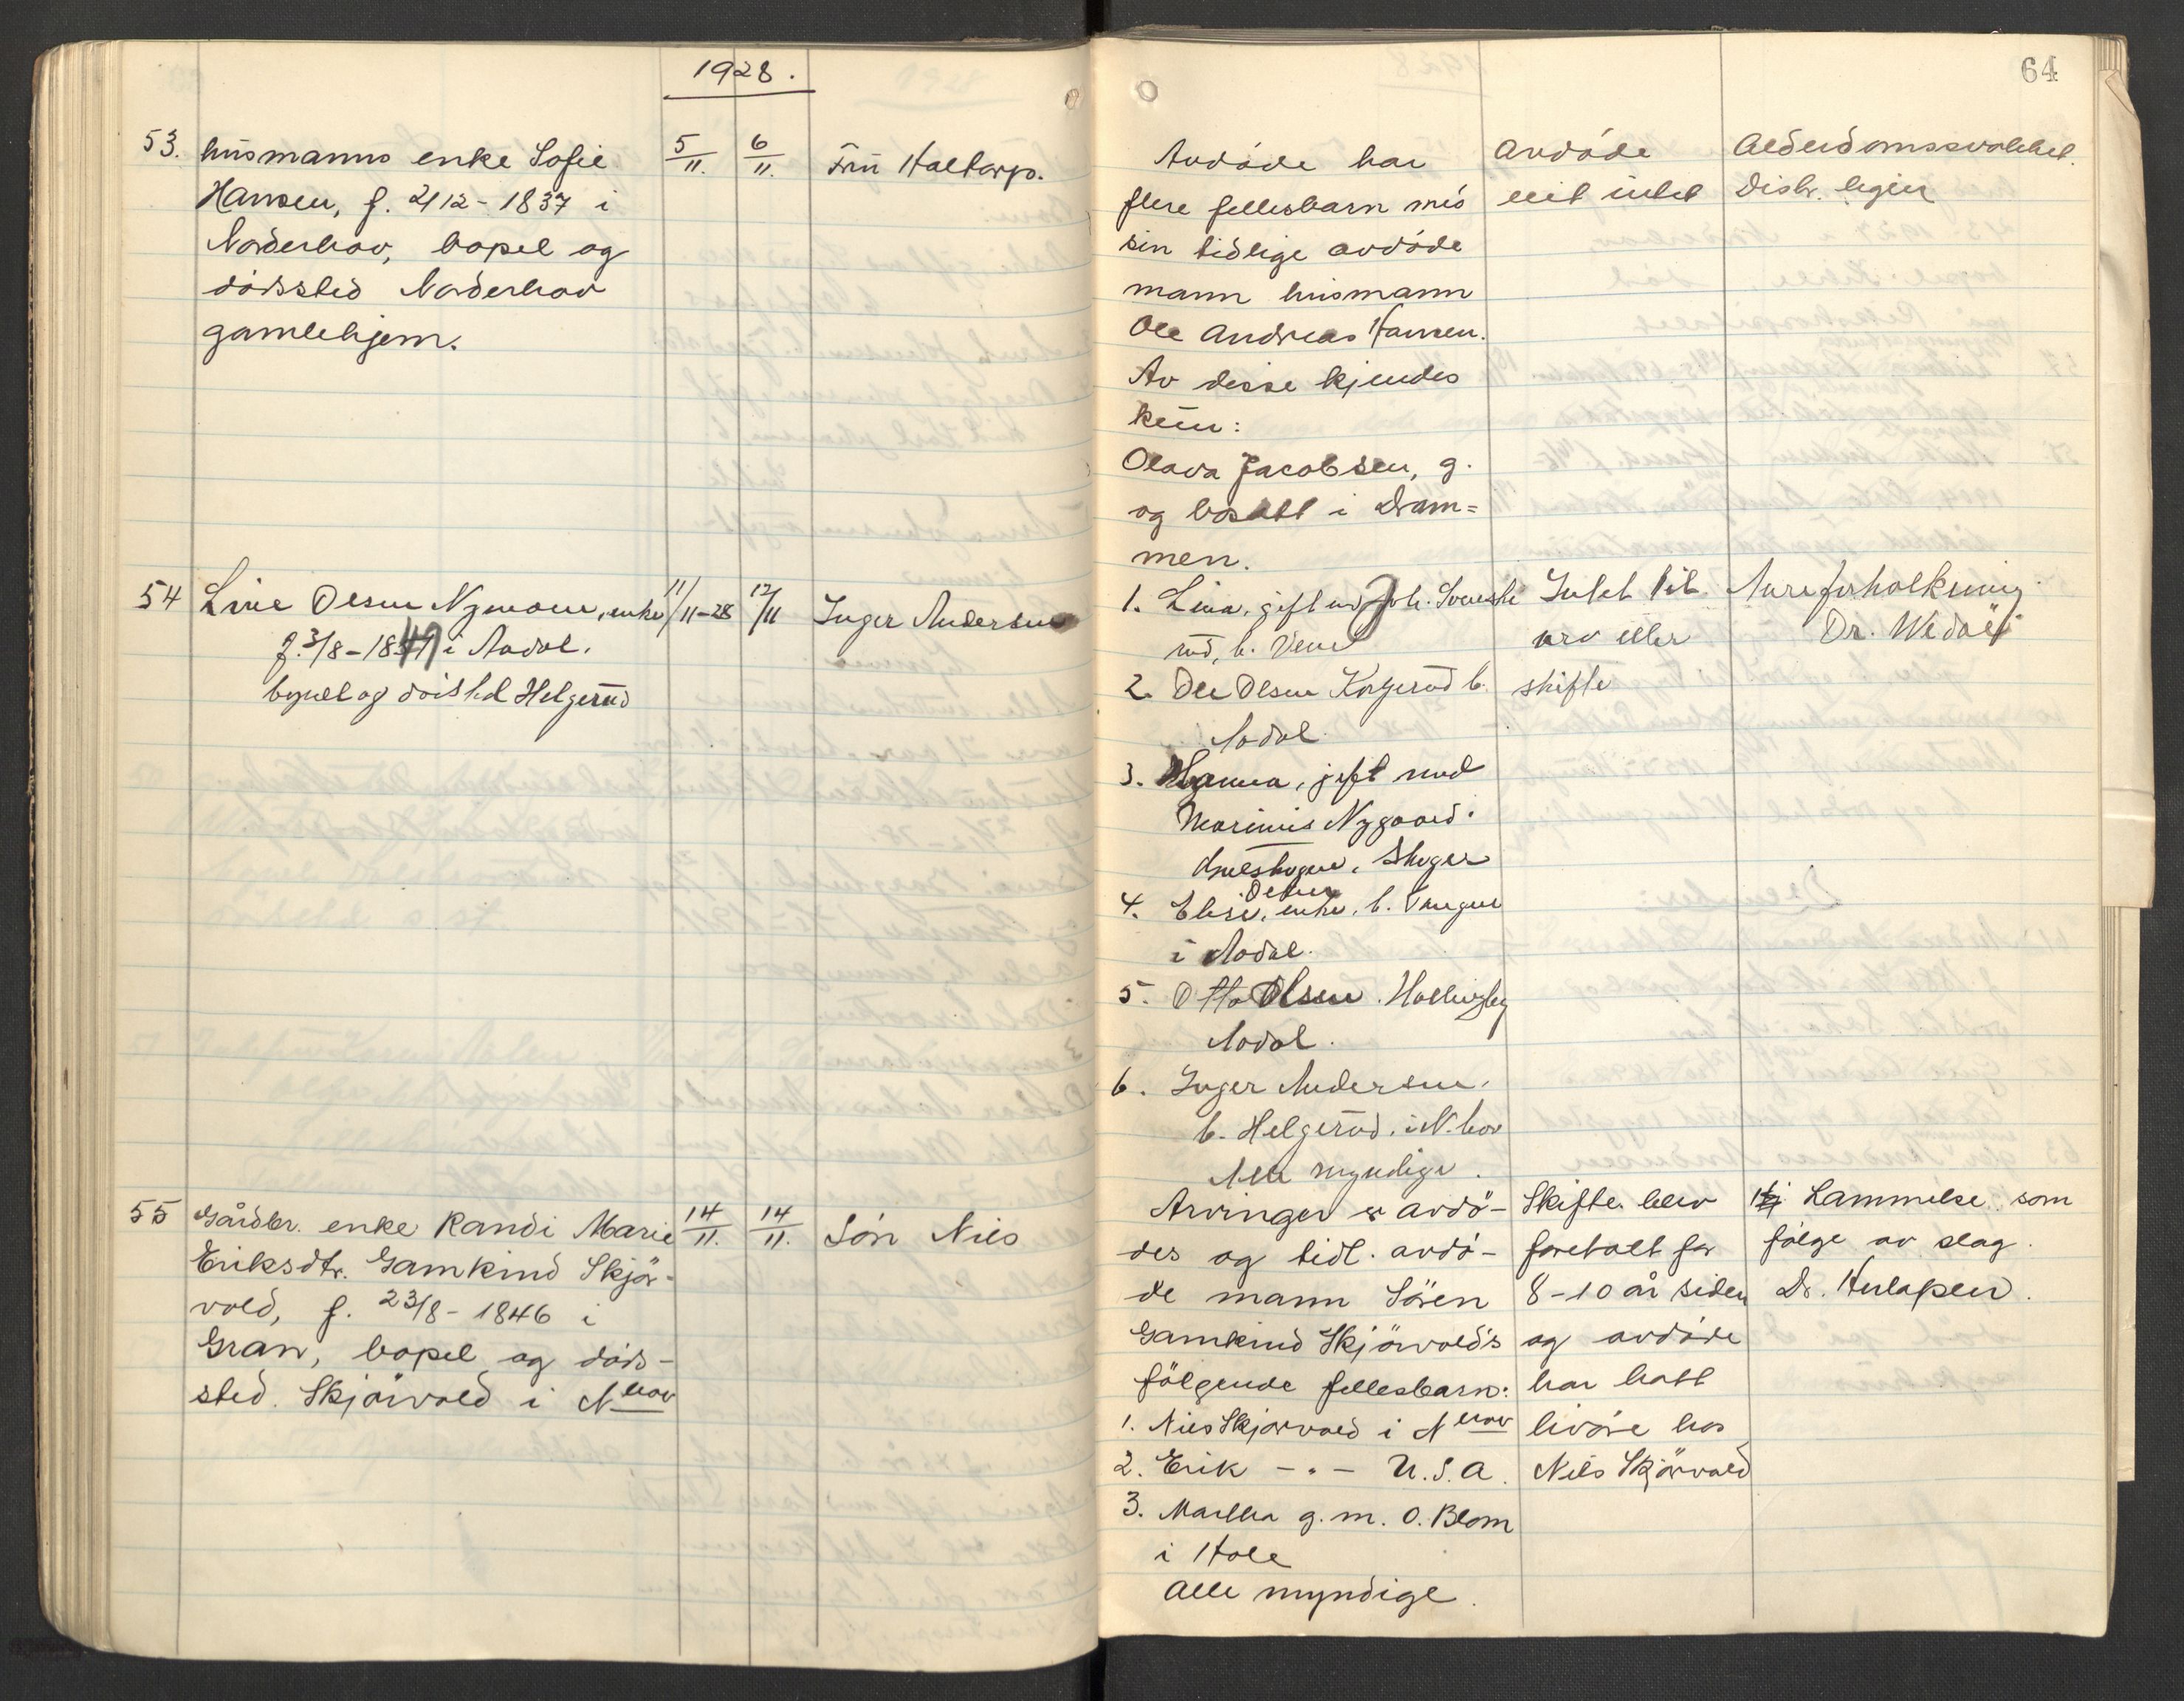 1928.
64
53. husmanns enke Sofie
Hansen, f. 2/12-1837 i
Norderhov, bopel og
dödssted Norderhov
gamlehjem.
5/11. 6/11. Fru Haltorp.
Avdöde har
flere fellesbarn med
sin tidlige avdöde
mann husmann
Ole Andreas Hansen.
Av disse kjendes
kun:
Olava Jacobsen, g.
og bosatt i Dram=
men.
Avdöde
eiet intet
Alderdomssvakhet.
Distr. legen
54 Line Olsen Nymoen, enke
f. 3/8-1841 i Aadal.
bopel og dödsted Helgerud
11/11-28 12/11 Inger Andersen
1. Lina, gift med Joh.
rud, b.
2. Ole Olsen b.
Aadal.
3. Hanna, gift med
Marinius Nygaard.
Skoger
4. Elise Olsen, enke, b.
i Aadal.
5. Otto Olsen. Hallingby
Aadal.
6. Inger Andersen.
b. Helgerud. i N.hov
Alle myndige.
Intet til
arv eller
skifte
Aareforkalkning.
Dr. Wedöe
55 Gårdbr. enke Randi Marie
Eriksdtr. Gamkind Skjör-
vold, f. 23/8-1846 i
Gran, bopel og döds-
sted. Skjörvold i Nhov
14/11. 14/11. Sön Nils
Arvinger er avdö-
des og tidl. avdö-
de mann Sören
Gamkind Skjörvold's
fölgende fellesbarn:
1. Nils Skjörvold i Nhov
2. Erik -"- U.S.A.
3. Martha g. m. O. Blom
i Hole
Alle myndige.
Skifte blev
foretatt for
8-10 år siden
og avdöde
har hatt
livöre hos
Nils Skjörvold
Lammelse som
fölge av slag.
Dr.